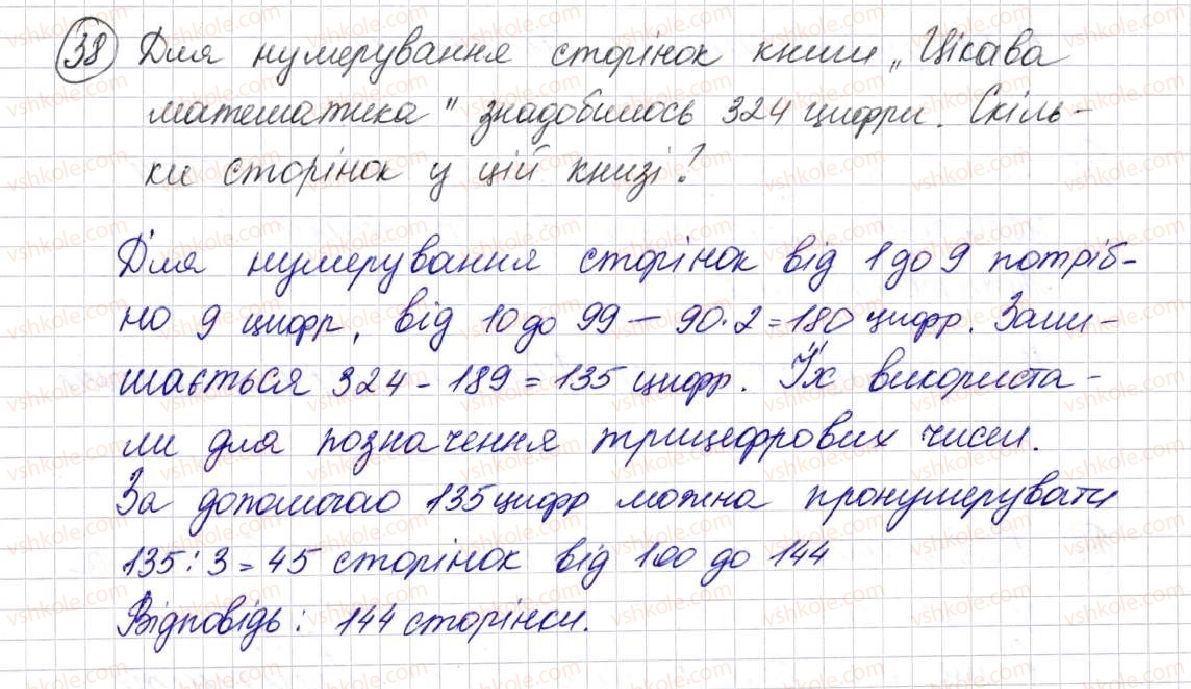 38 Для нумерування сторінок книги „Цікава
математика" знадобилось 324 цифри. Скіль-
ки сторінок у цій книзі?
Для нумерування сторінок від 1 до 9 потріб-
но 9 цифр, від 10 до 99 – 90·2=180 цифр. Зали-
шається 324-189=135 цифр. Їх використа-
ли для позначення трицифрових чисел.
За допомогою 135 цифр можна пронумерувати
135:3=45 сторінок від 100 до 144
Відповідь: 144 сторінки.